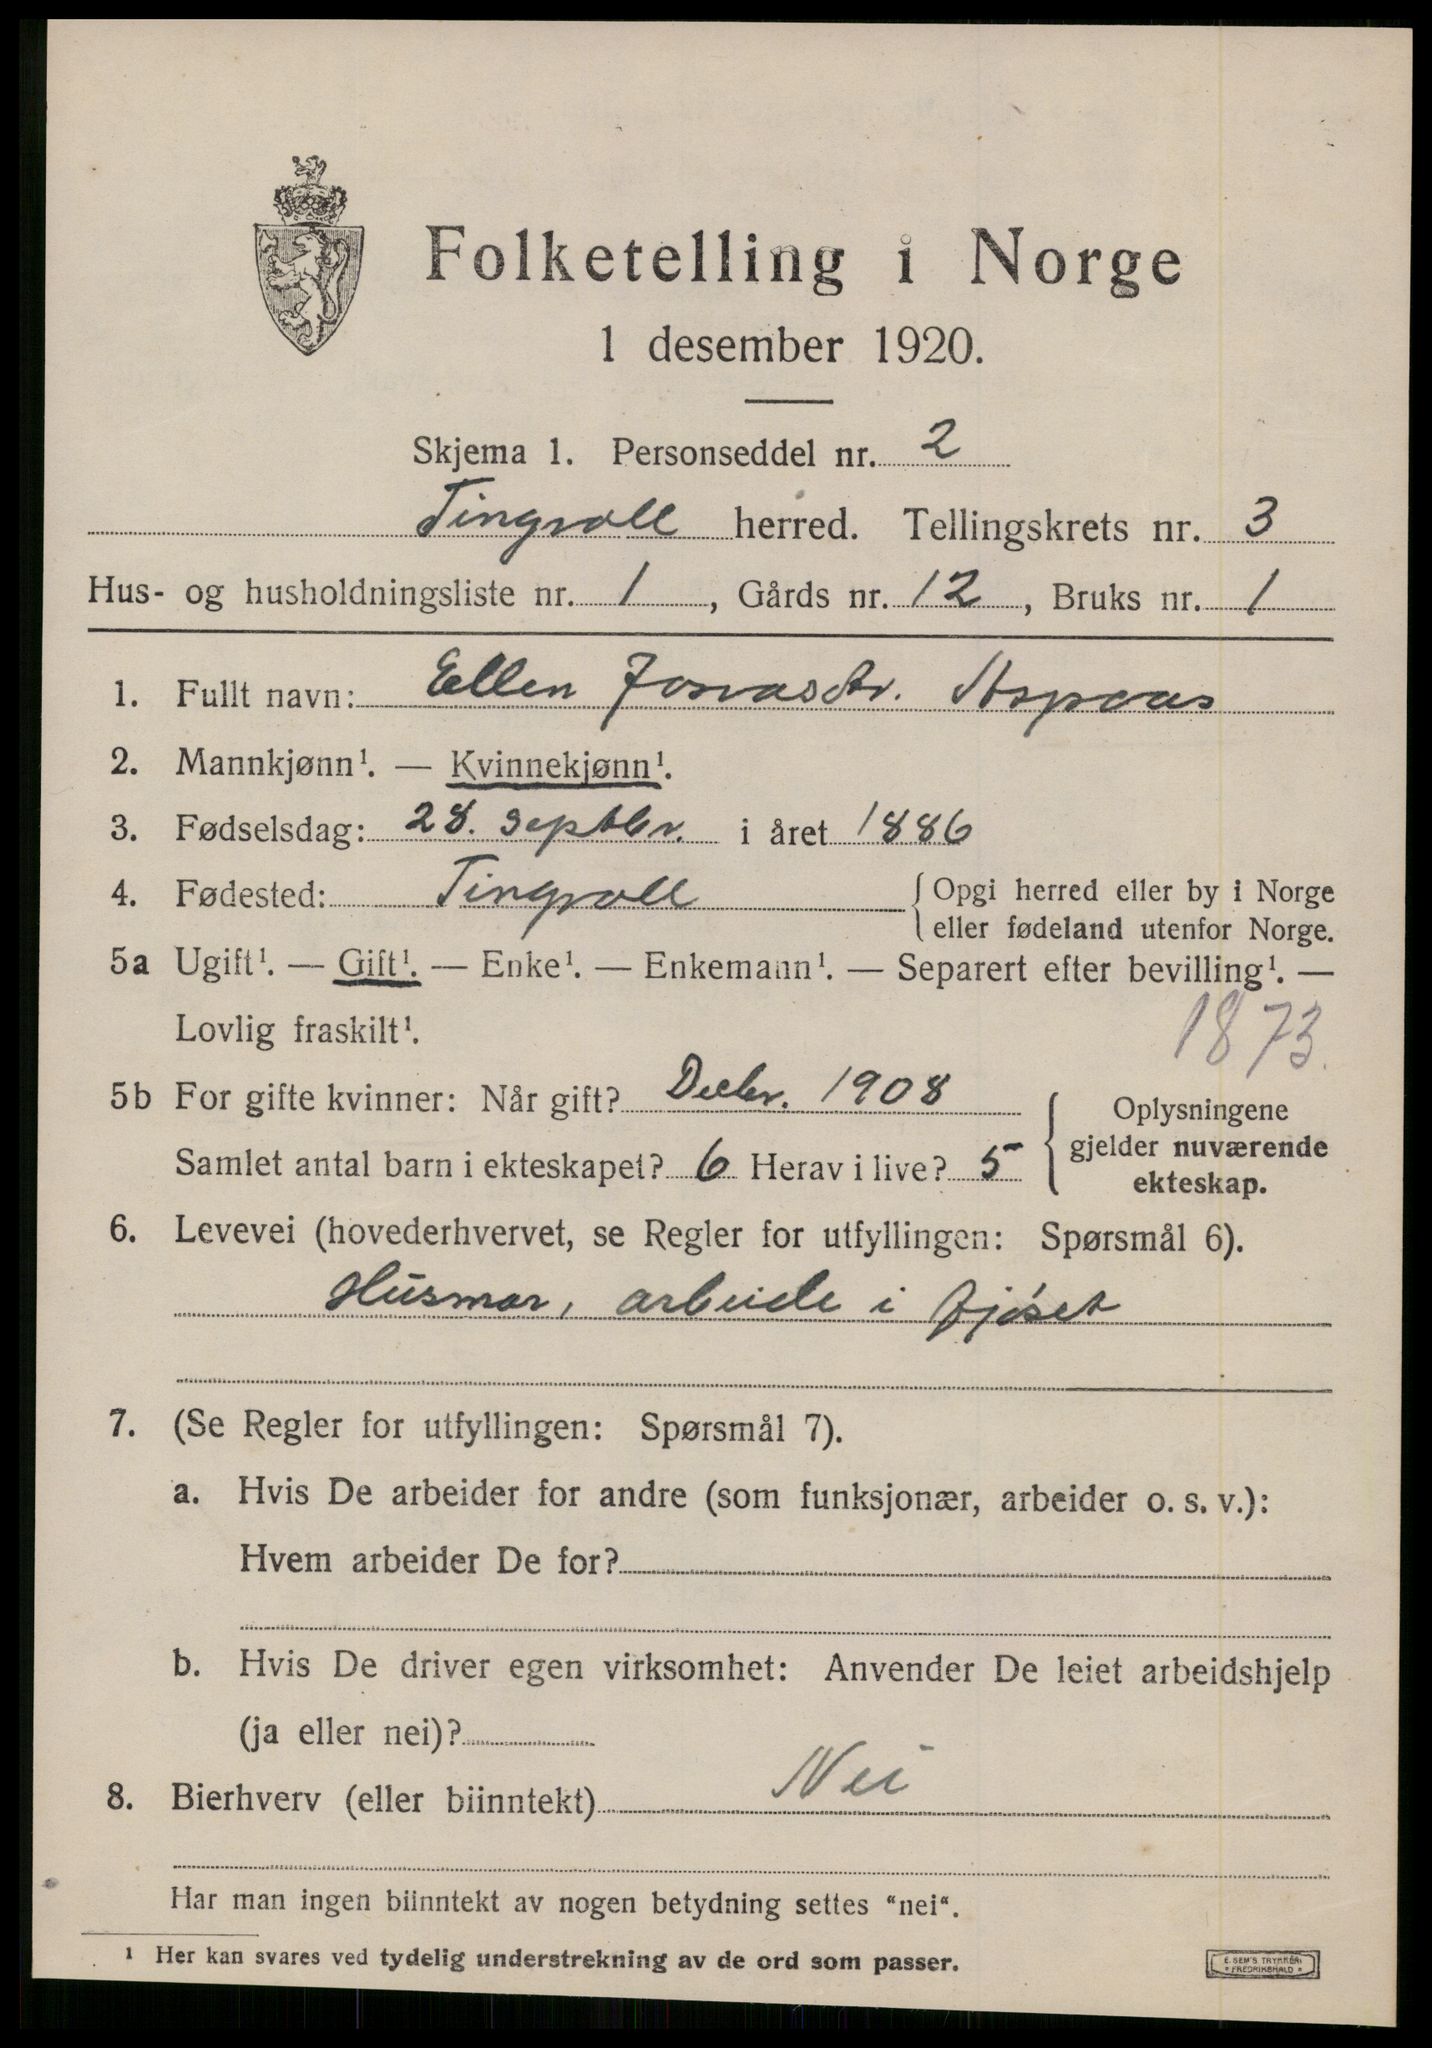 Folketelling i Norge
1 desember 1920.
Skjema 1. Personseddel nr. 2
Tingvoll herred. Tellingskrets nr. 3
Hus- og husholdningsliste nr. 1, Gårds nr. 12, Bruks nr. 1
1. Fullt navn: Ellen Josvasdtr. Aspaas
2. Mannkjønn¹. — Kvinnekjønn¹.
3. Fødselsdag: 28. septbr. i året 1886
4. Fødested: Tingvoll { Opgi herred eller by i Norge
eller fødeland utenfor Norge.
5a Ugift¹. — Gift¹. — Enke¹. — Enkemann¹. — Separert efter bevilling¹. —
Lovlig fraskilt¹.
1873.
5b For gifte kvinner: Når gift? Decbr. 1908
Samlet antal barn i ekteskapet? 6 Herav i live? 5
{ Oplysningene
gjelder nuværende
ekteskap.
6. Levevei (hovederhvervet, se Regler for utfyllingen: Spørsmål 6).
Husmor, arbeide i fjøset
7. (Se Regler for utfyllingen: Spørsmål 7).
a. Hvis De arbeider for andre (som funksjonær, arbeider o. s. v.):
Hvem arbeider De for?
b. Hvis De driver egen virksomhet: Anvender De leiet arbeidshjelp
(ja eller nei)?
8. Bierhverv (eller biinntekt) Nei
Har man ingen biinntekt av nogen betydning settes "nei".
¹ Her kan svares ved tydelig understrekning av de ord som passer.
E. SEM'S TRYKKERI
* FREDRIKSHALD *